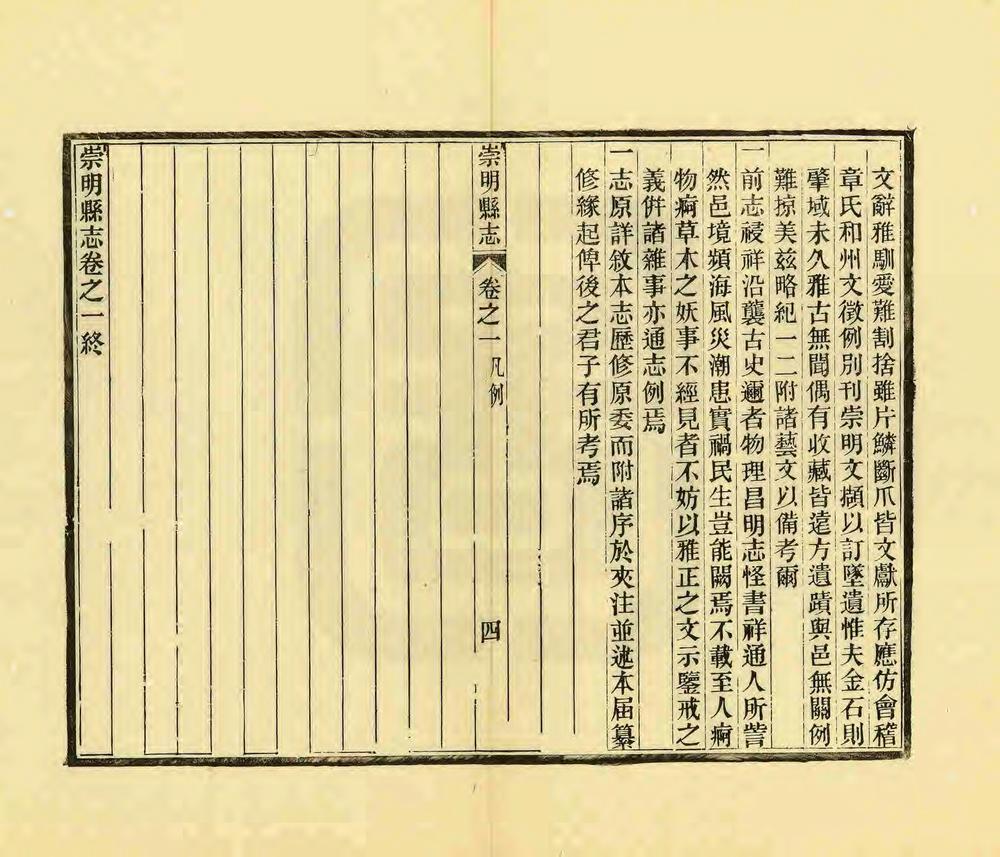 文辭雅馴愛難割捨雖片鱗斷爪皆文獻所存應仿會稽
章氏和州文徵例別刊崇明文擷以訂墜遺惟夫金石則
肇域未久雅古無聞偶有收藏皆遠方遺蹟與邑無關例
難掠美茲略紀一二附諸藝文以備考爾
一前志祲祥沿襲古史邇者物理昌明志怪書祥通人所訾
然邑境頻海風災潮患實禍民生豈能闕焉不載至人痾
物痾草木之妖事不經見者不妨以雅正之文示鑒戒之
義併諸雜事亦通志例焉
一志原詳敘本志歷修原委而附諸序於夾注並述本届纂
修緣起俾後之君子有所考焉
崇明縣志 卷之一 凡例 四
崇明縣志卷之一終